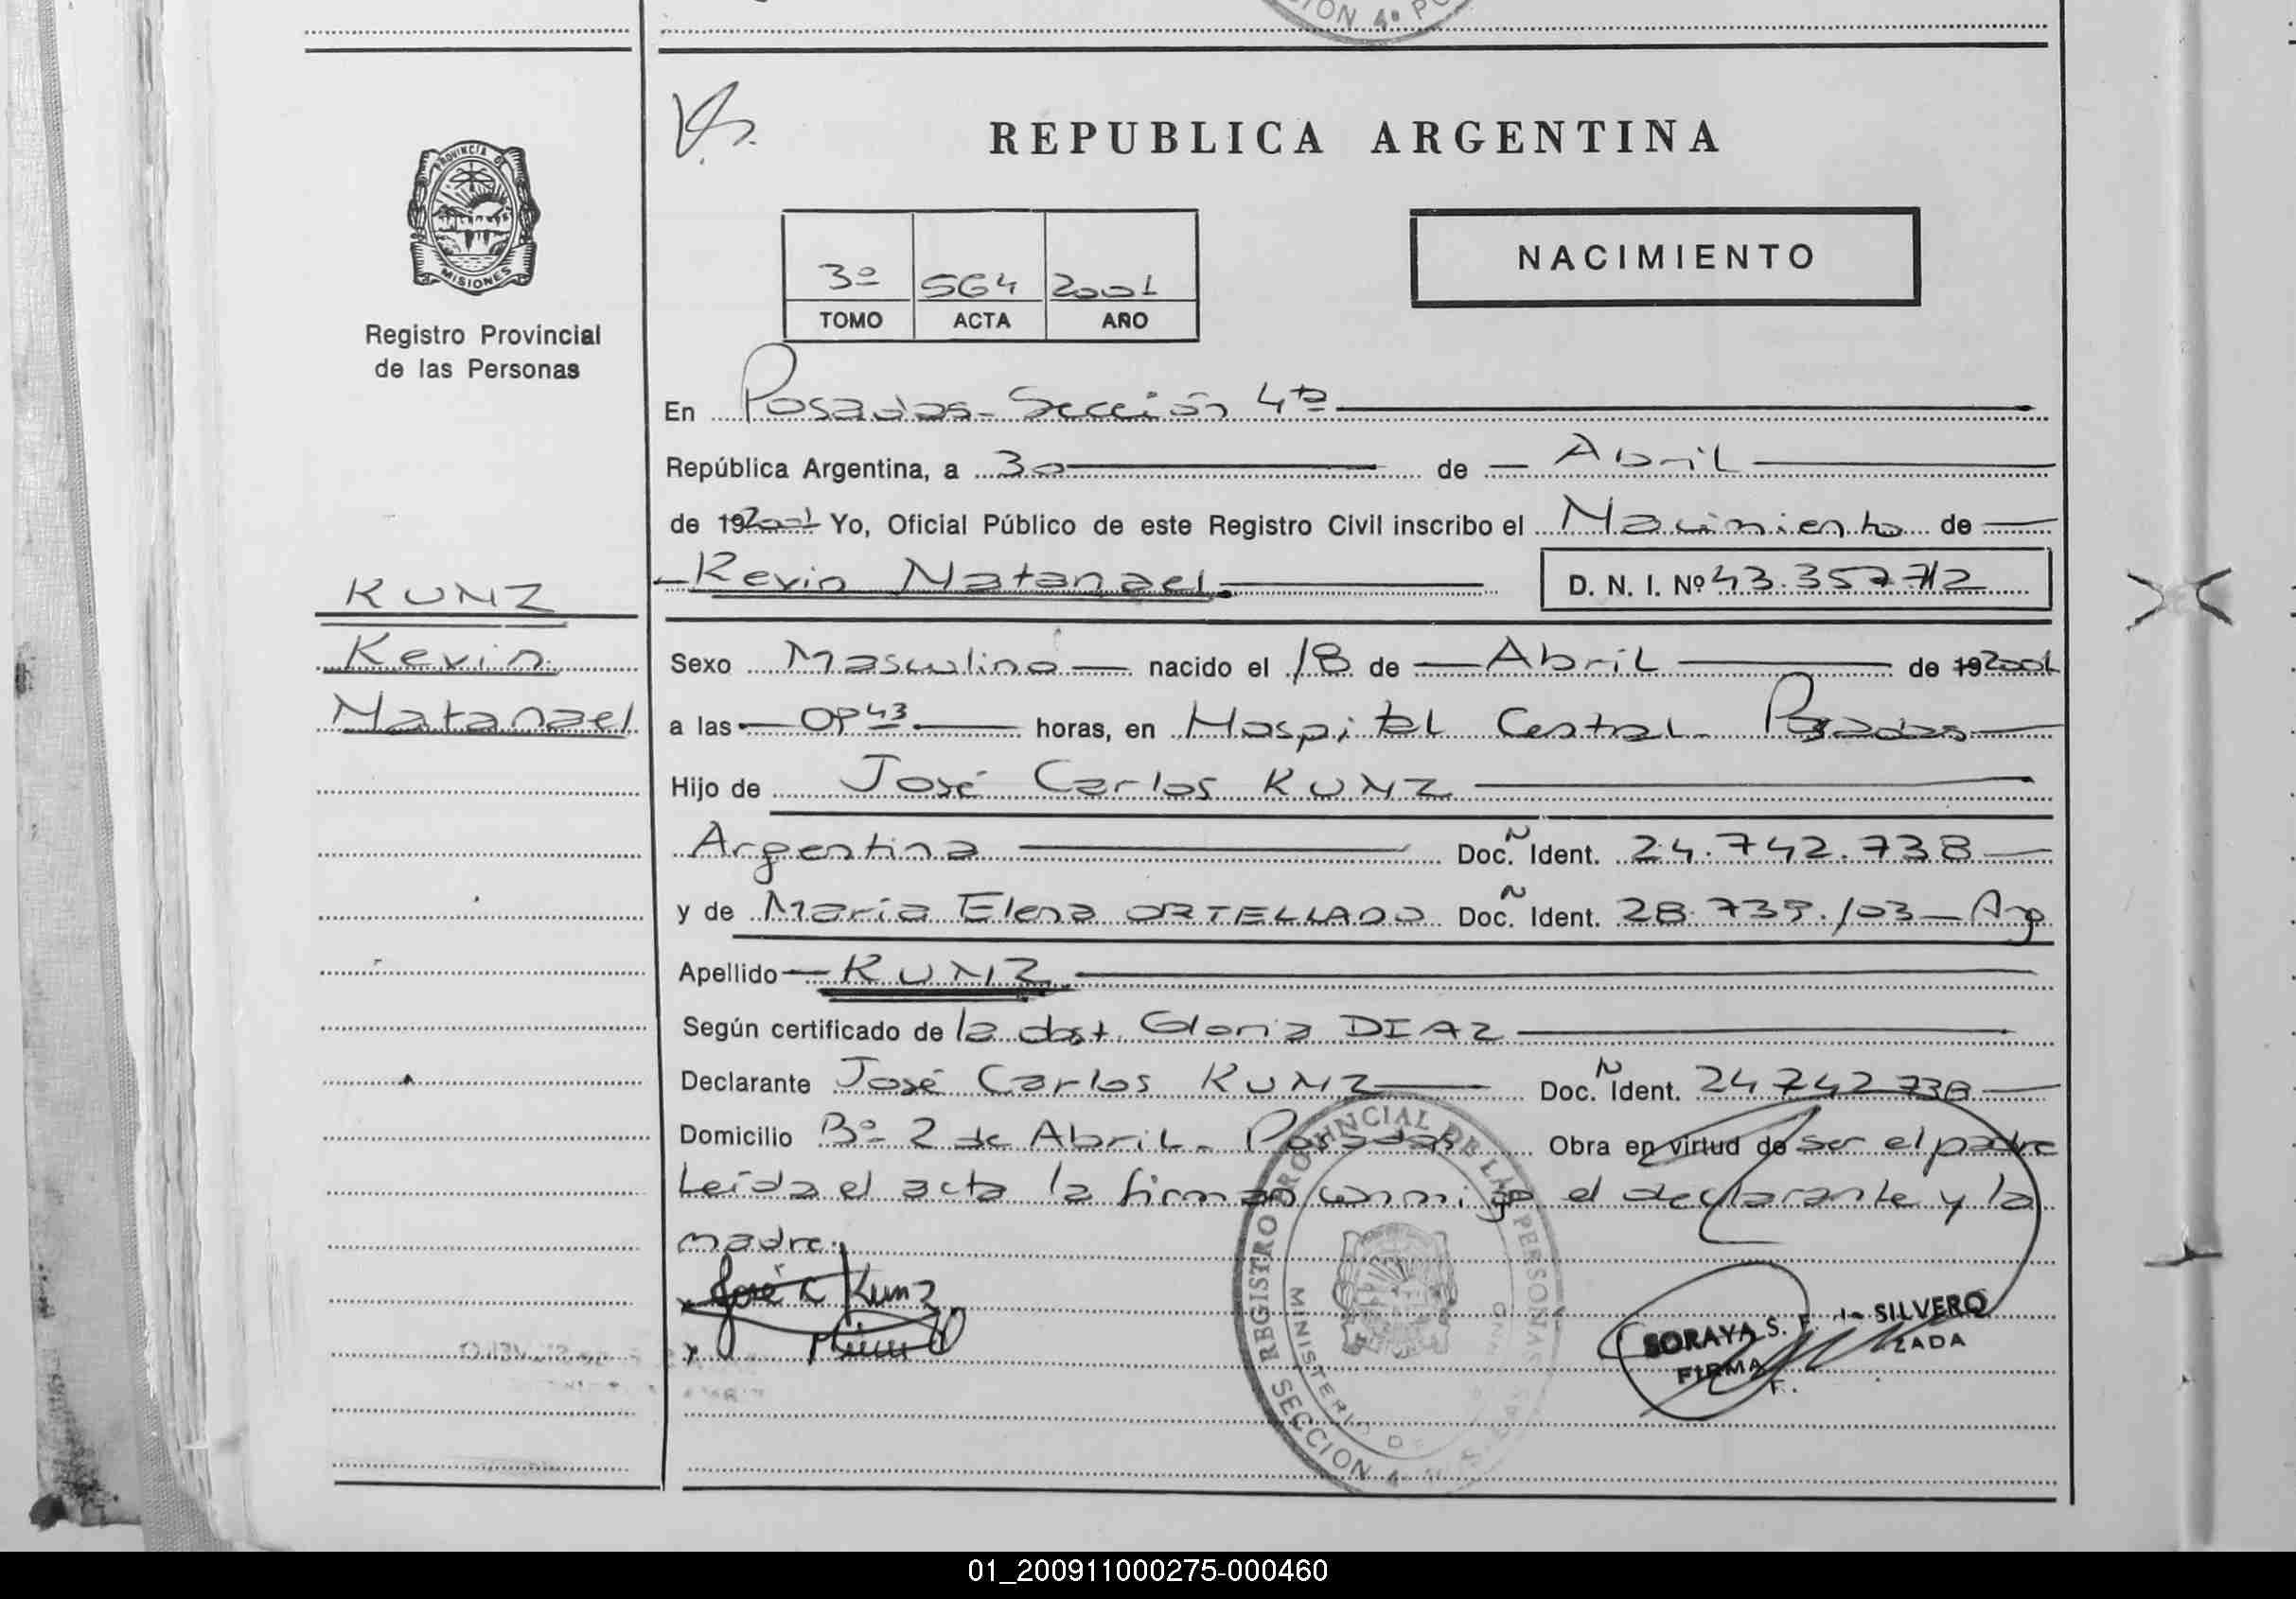 CION 4º PO
REPUBLICA ARGENTINA
PROVINCIA DE
MISIONES
Registro Provincial
de las Personas
NACIMIENTO
3º 564 2001
TOMO ACTA AÑO
En Posadas - Sección 4ta
República Argentina, a 30 de Abril
de 19 2001 Yo, Oficial Público de este Registro Civil inscribo el Nacimiento de
Kevin Natanael.
D. N. I. Nº 43.357.712
KUNZ
Kevin
Natanael
Sexo Masculino nacido el 18 de Abril de 19 2001
a las 09 43 horas, en Hospital Central Posadas
Hijo de José Carlos KUNZ
Argentina Doc. N Ident. 24.742.738
y de María Elena ORTELLADO Doc. N Ident. 28.739.103 - Arg
Apellido KUNZ
Según certificado de la obst. Gloria DIAZ
Declarante José Carlos KUNZ Doc. N Ident. 24 742 738
Domicilio Bº 2 de Abril - Posadas Obra en virtud de ser el padre
Leída el acta la firman conmigo el declarante y la
madre.
José C Kunz
x
REGISTRO PROVINCIAL DE LAS PERSONAS
MINISTERIO DE
SECCION 4
SORAYA S. F. SILVERO
FIRMA ZADA
01_200911000275-000460